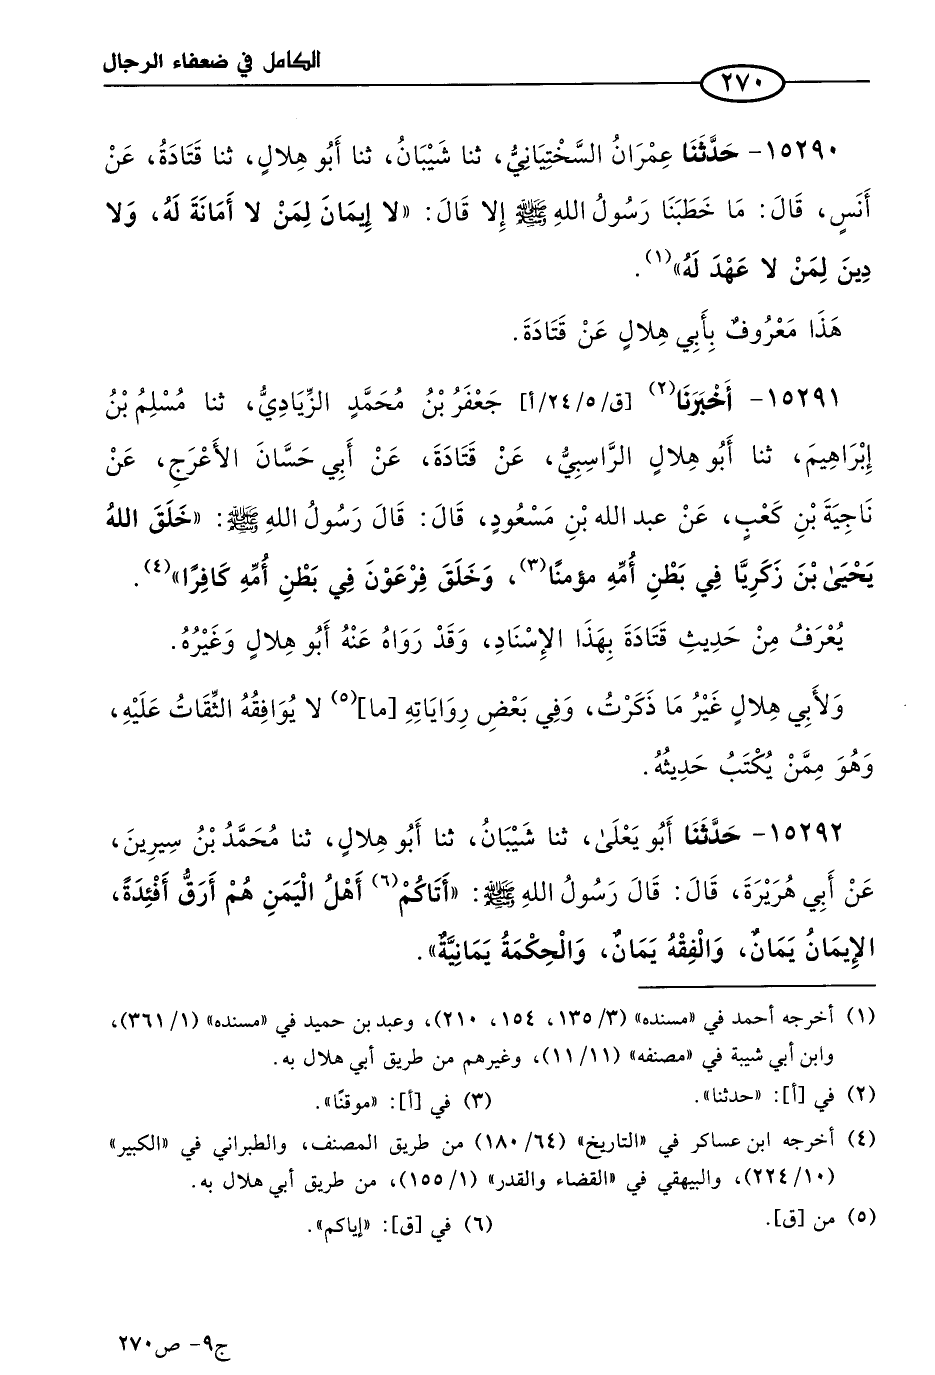 الكامل في ضعفاء الرجال
٢٧٠
١٥٢٩٠- حَدَّثَنَا عِمْرَانُ السَّخْتِيَانِيُّ، ثنا شَيْبَانُ، ثنا أَبُو هِلالٍ، ثنا قَتَادَةُ، عَنْ
أَنَسٍ، قَالَ: مَا خَطَبَنَا رَسُولُ اللهِ ﷺ إِلا قَالَ: «لا إِيمَانَ لِمَنْ لا أَمَانَةَ لَهُ، وَلا
دِينَ لِمَنْ لا عَهْدَ لَهُ»(١).
هَذَا مَعْرُوفٌ بِأَبِي هِلالٍ عَنْ قَتَادَةَ.
١٥٢٩١- أَخْبَرَنَا(٢) [ق/٢٤/٥/أ] جَعْفَرُ بْنُ مُحَمَّدٍ الزِّيَادِيُّ، ثنا مُسْلِمُ بْنُ
إِبْرَاهِيمَ، ثنا أَبُو هِلالٍ الرَّاسِبِيُّ، عَنْ قَتَادَةَ، عَنْ أَبِي حَسَّانَ الأَعْرَجِ، عَنْ
نَاجِيَةَ بْنِ كَعْبٍ، عَنْ عبد الله بْنِ مَسْعُودٍ، قَالَ: قَالَ رَسُولُ اللهِ ﷺ: «خَلَقَ اللهُ
يَحْيَىٰ بْنَ زَكَرِيَّا فِي بَطْنِ أُمِّهِ مؤمنًا(٣)، وَخَلَقَ فِرْعَوْنَ فِي بَطْنِ أُمِّهِ كَافِرًا»(٤).
يُعْرَفُ مِنْ حَدِيثِ قَتَادَةَ بِهَذَا الإِسْنَادِ، وَقَدْ رَوَاهُ عَنْهُ أَبُو هِلالٍ وَغَيْرُهُ.
وَلأَبِي هِلالٍ غَيْرُ مَا ذَكَرْتُ، وَفِي بَعْضِ رِوَايَاتِهِ [ما](٥) لا يُوَافِقُهُ الثِّقَاتُ عَلَيْهِ،
وَهُوَ مِمَّنْ يُكْتَبُ حَدِيثُهُ.
١٥٢٩٢- حَدَّثَنَا أَبُو يَعْلَىٰ، ثنا شَيْبَانُ، ثنا أَبُو هِلالٍ، ثنا مُحَمَّدُ بْنُ سِيرِينَ،
عَنْ أَبِي هُرَيْرَةَ، قَالَ: قَالَ رَسُولُ اللهِ ﷺ: «أَتَاكُمْ(٦) أَهْلُ الْيَمَنِ هُمْ أَرَقُّ أَفْئِدَةً،
الإِيمَانُ يَمَانٌ، وَالْفِقْهُ يَمَانٌ، وَالْحِكْمَةُ يَمَانِيَّةٌ».
(١) أخرجه أحمد في «مسنده» (١٣٥/٣، ١٥٤، ٢١٠)، وعبد بن حميد في «مسنده» (٣٦١/١)،
وابن أبي شيبة في «مصنفه» (١١/١١)، وغيرهم من طريق أبي هلال به.
(٢) في [أ]: «حدثنا». (٣) في [أ]: «موقنًا».
(٤) أخرجه ابن عساكر في «التاريخ» (١٨٠/٦٤) من طريق المصنف، والطبراني في «الكبير»
(٢٢٤/١٠)، والبيهقي في «القضاء والقدر» (١٥٥/١)، من طريق أبي هلال به.
(٥) من [ق]. (٦) في [ق]: «إياكم».
ج٩- ص٢٧٠